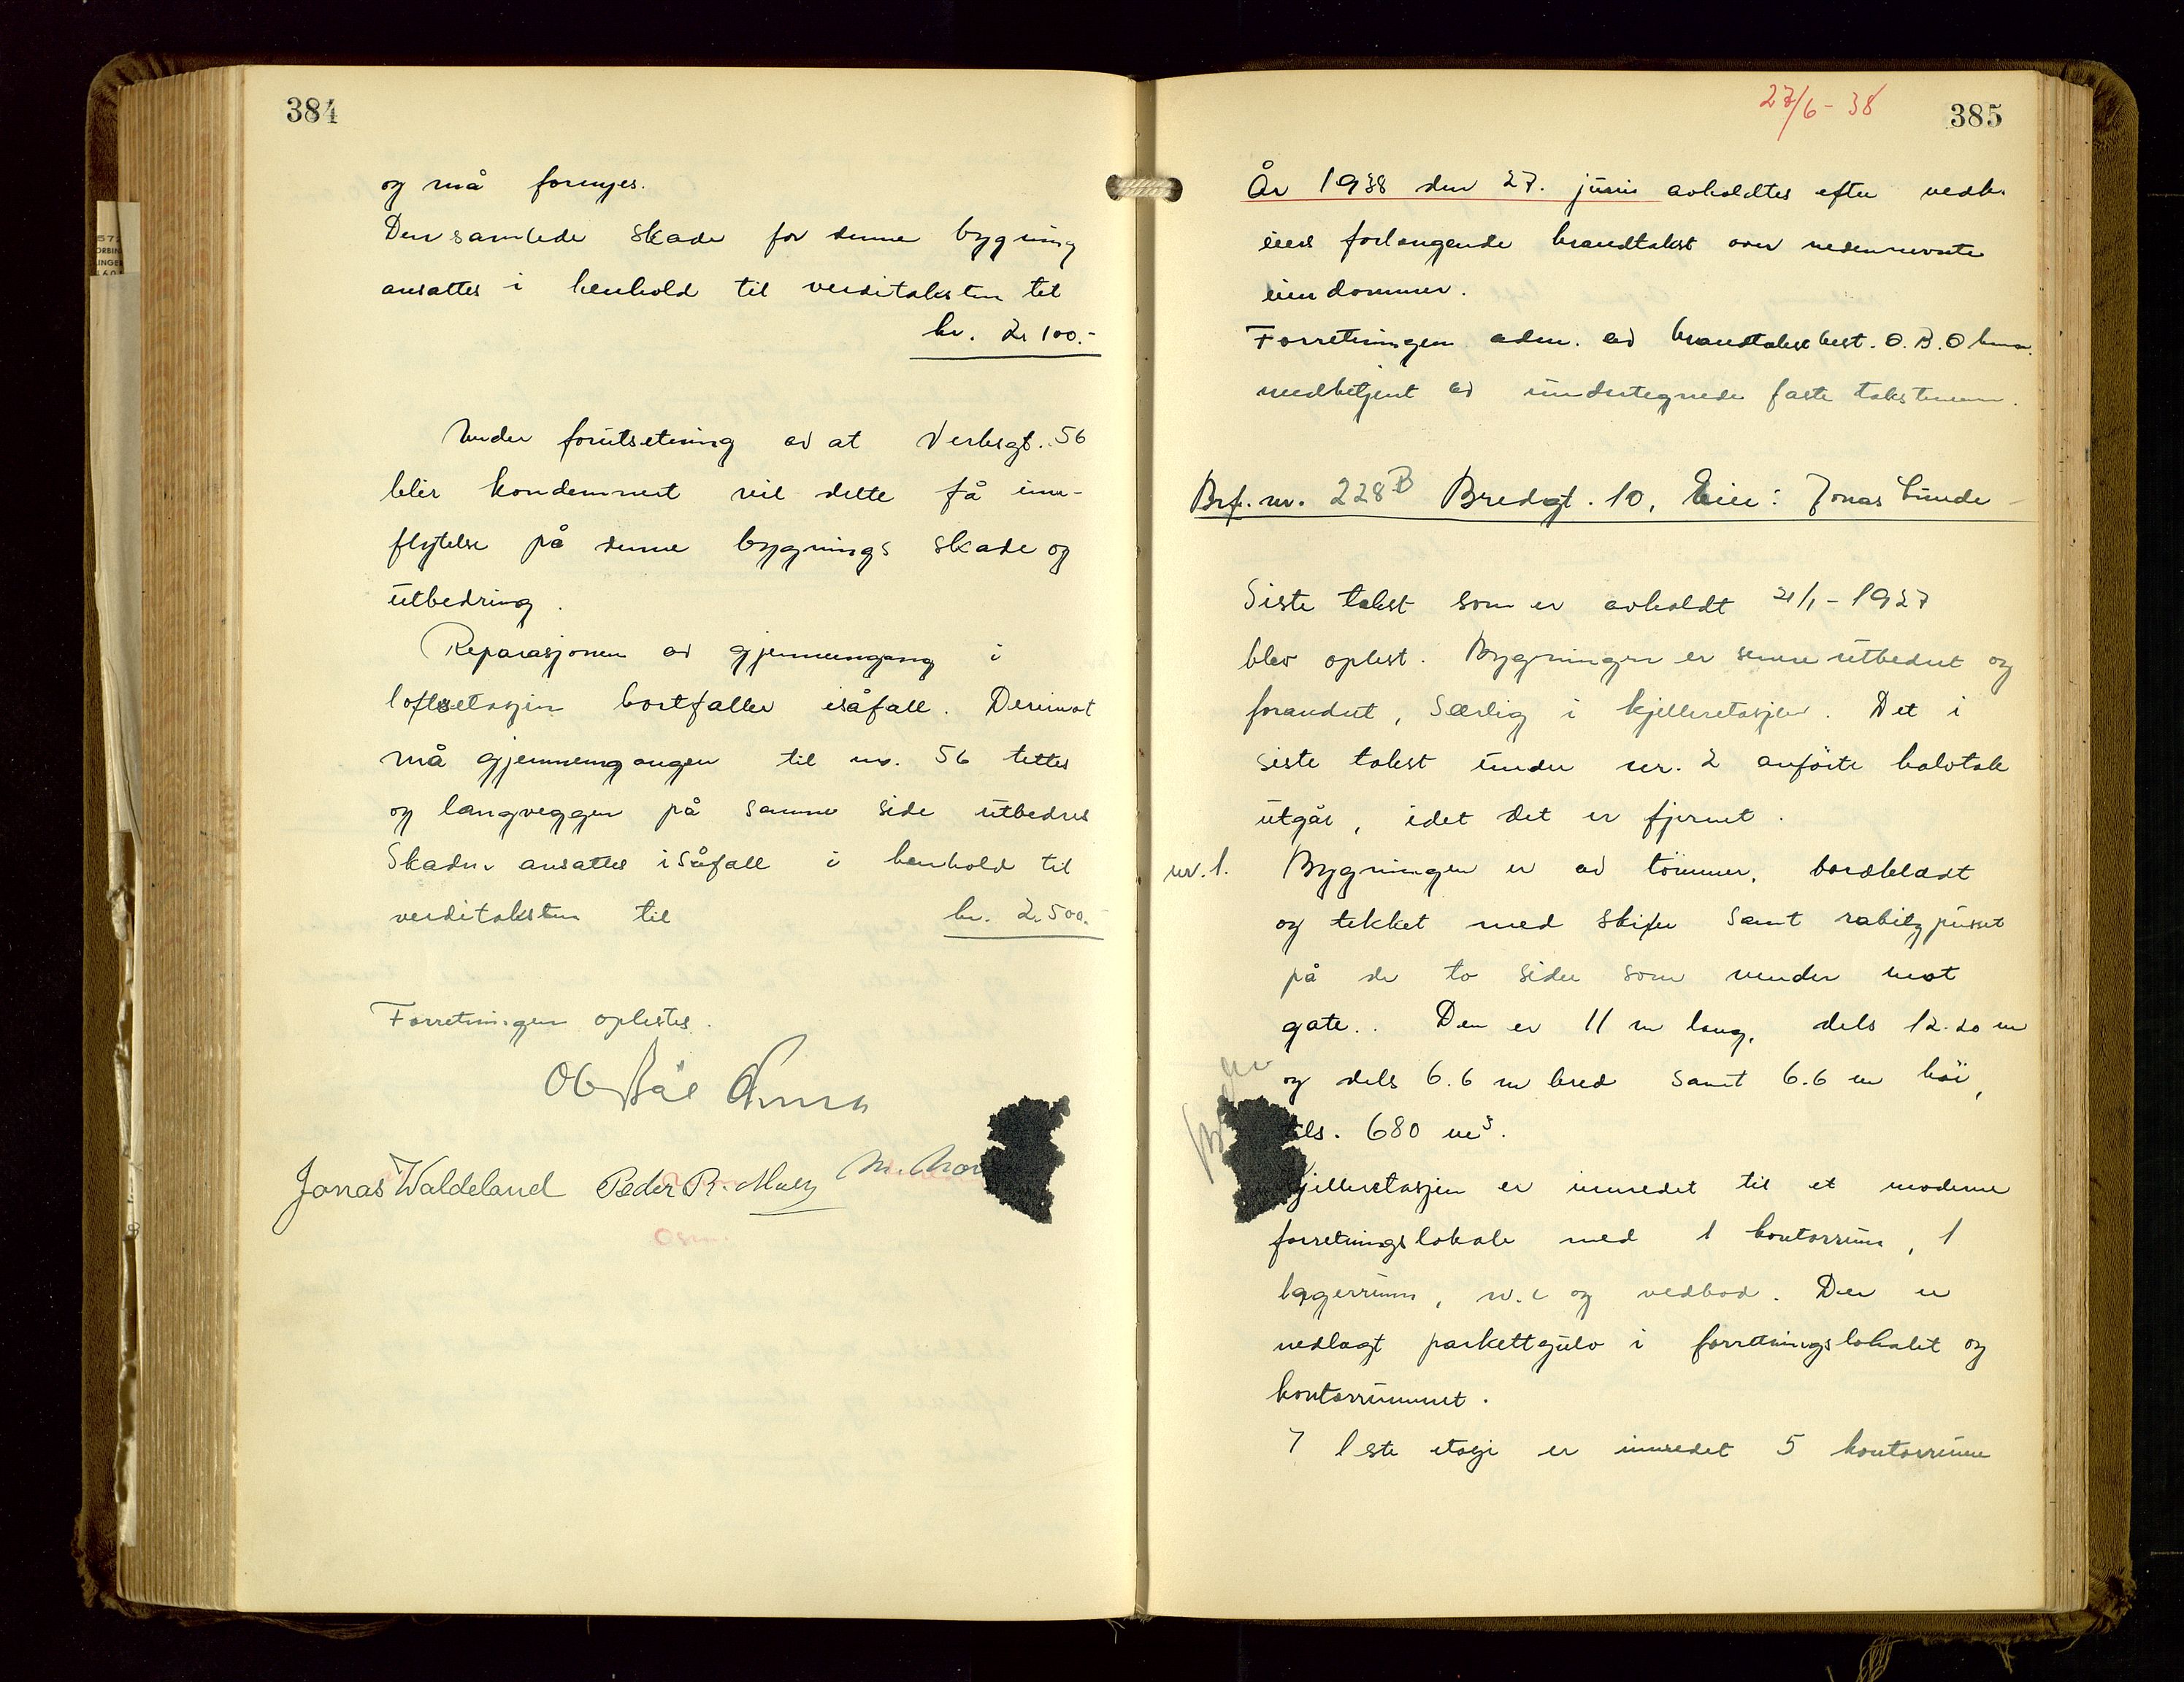 384
og må fornyes.
Den samlede skade for denne bygning
ansattes i henhold til verditaksten til
kr. 2.100.-
Under forutsetning av at Verksgt. 56
blir kondemnert vil dette få inn-
flytelse på denne bygnings skade og
utbedring.
Reparasjonen av gjennemgang i
loftsetasjen bortfaller isåfall. Derimot
må gjennemgangen til nr. 56 tettes
og langveggen på samme side utbedres
Skaden ansattes isåfall i henhold til
verditaksten til kr. 2.500.-
Forretningen oplestes.
Jonas Waldeland Peder R. 
27/6-38
385
År 1938 den 27. juni avholdtes efter vedk.
eiers forlangende brandtakst over nedennevnte
eiendommer.
Forretningen adm. av brandtakstbest. O.B.
medbetjent av undertegnede faste takstmenn.
Brf. nr. 228B Bredgt. 10, Eier: Jonas Lunde
Siste takst som er avholdt 21/1-1927
blev oplest. Bygningen er senere utbedret og
forandret, særlig i kjelleretasjen. Det i
siste takst under nr. 2 anførte halvtak
utgår, idet det er fjernet.
nr. 1. Bygningen er av tømmer, bordklædt
og tekket med skifer samt rabitzpusset
på de to sider som vender mot
gate. Den er 11 m lang, dels 12.20 m
og dels 6.6 m bred samt 6.6 m høi,
tils. 680 m³.
Kjelleretasjen er innredet til et moderne
forretningslokale med 1 kontorrum, 1
lagerrum, w.c og vedbod. Der er
nedlagt parkettgulv i forretningslokalet og
kontorrummet.
I 1ste etasje er innredet 5 kontorrum